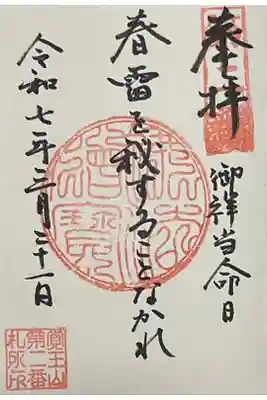 奉拝
御祥当命日
春雷を秘することなかれ
令和七年三月二十一日
覺王山
第二番
札所印